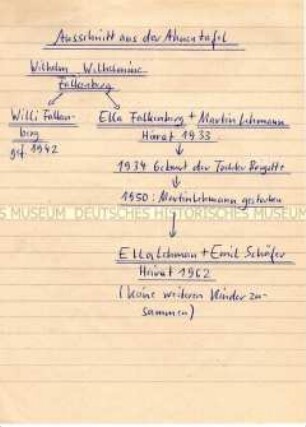 Ausschnitt aus der Ahnentafel
Wilhelm Wilhelmine
Falkenberg
Willi Falken-
berg
gef. 1942
Ella Falkenberg + Martin Lehmann
Heirat 1933
1934 Geburt der Tochter Brigitte
1950: Martin Lehmann gestorben
MUSEUM DEUTSCHES HISTORISCHES MUSEUM
Ella Lehman + Emil Schäfer
Heirat 1962
(keine weiteren Kinder zu-
sammen)